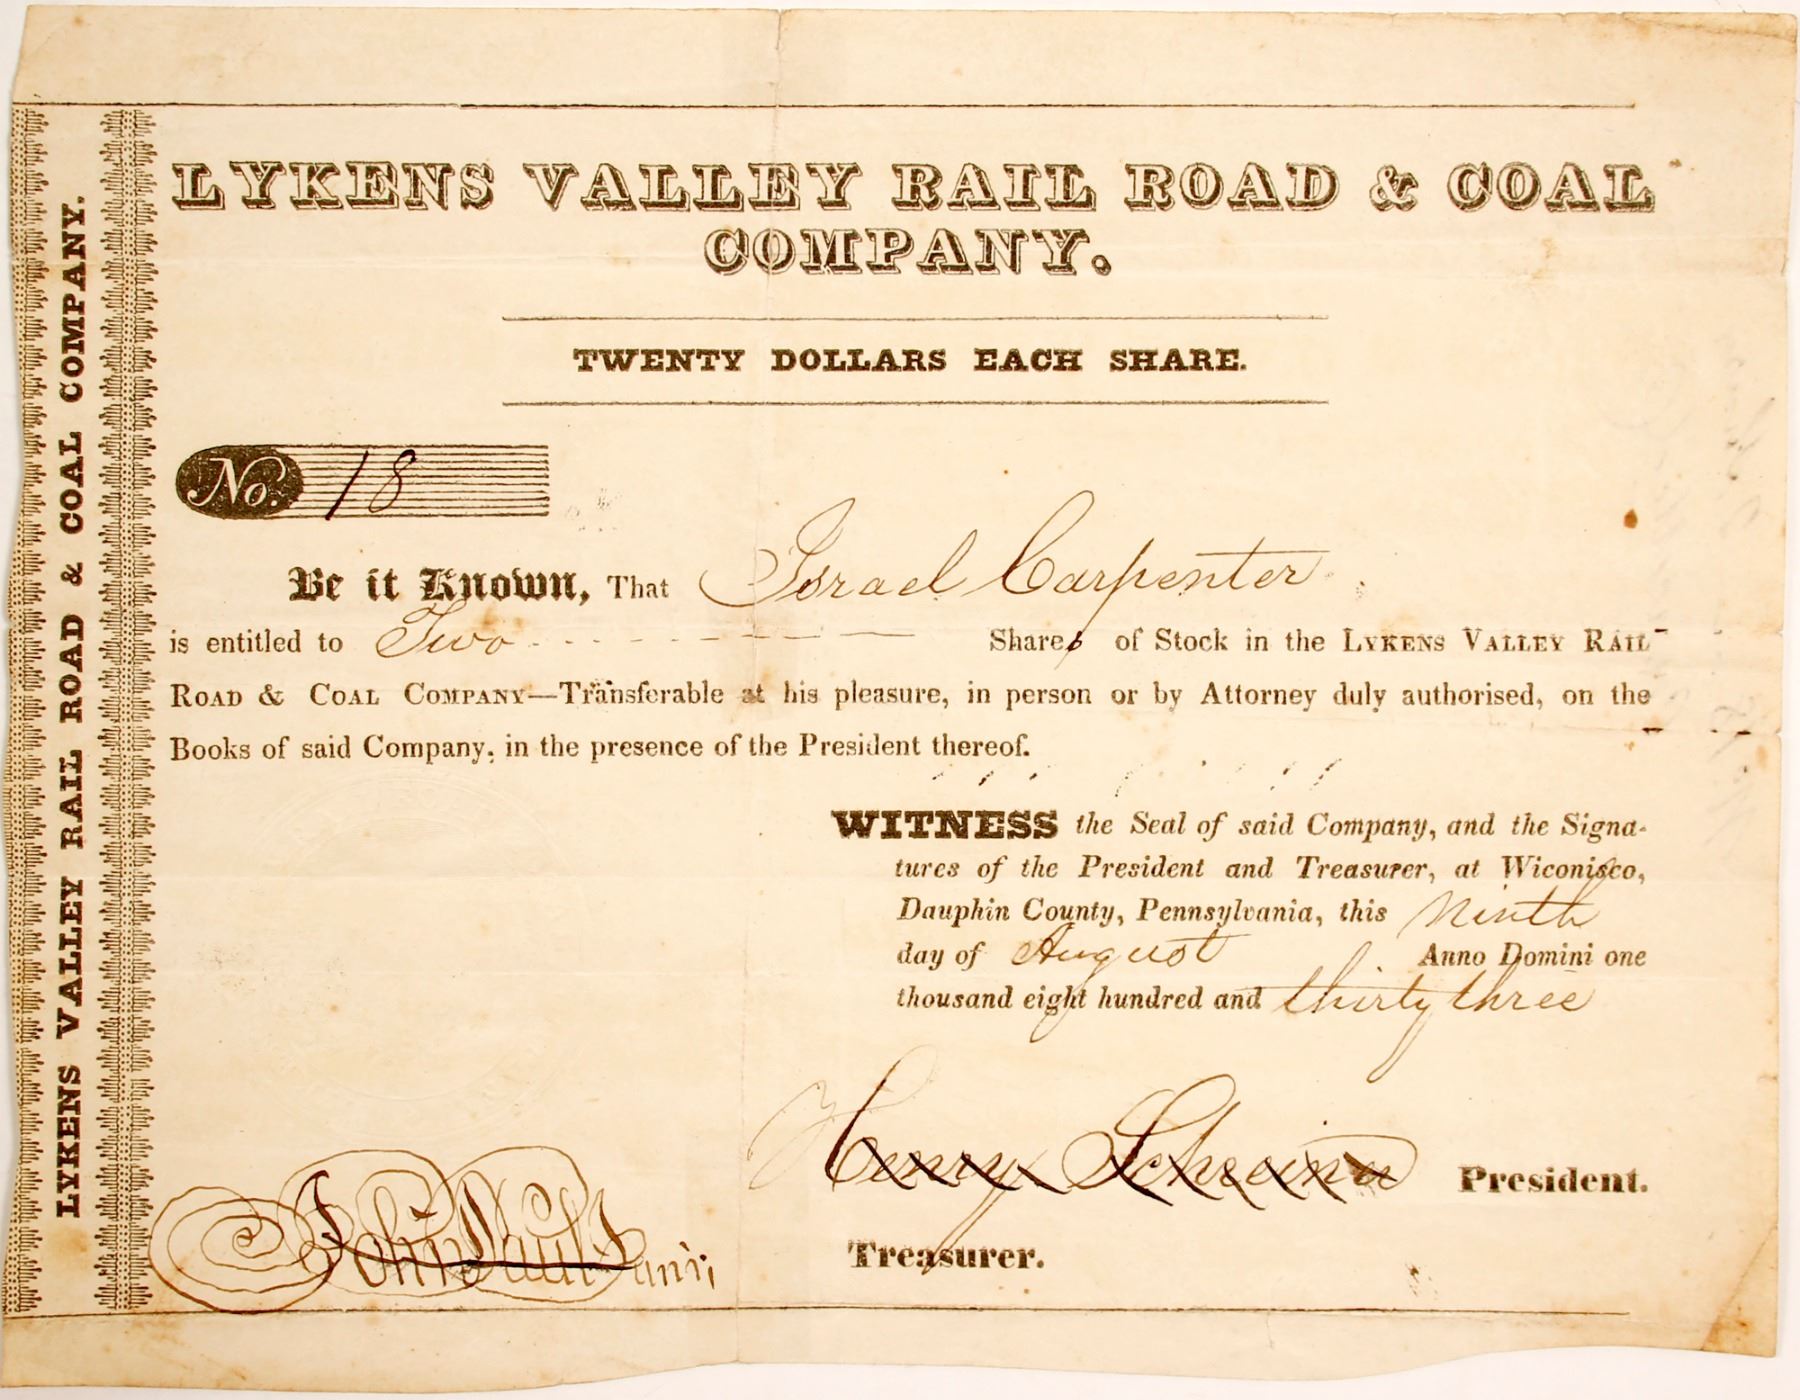 LYKENS VALLEY RAIL ROAD & COAL COMPANY.
LYKENS VALLEY RAIL ROAD & COAL
COMPANY.
TWENTY DOLLARS EACH SHARE.
No. 18
Be it Known, That Israel Carpenter
is entitled to Two Shares of Stock in the LYKENS VALLEY RAIL
ROAD & COAL COMPANY—Transferable at his pleasure, in person or by Attorney duly authorised, on the
Books of said Company, in the presence of the President thereof.
WITNESS the Seal of said Company, and the Signa-
tures of the President and Treasurer, at Wiconisco,
Dauphin County, Pennsylvania, this Ninth
day of August Anno Domini one
thousand eight hundred and thirty three
Henry President.
John Paul Treasurer.